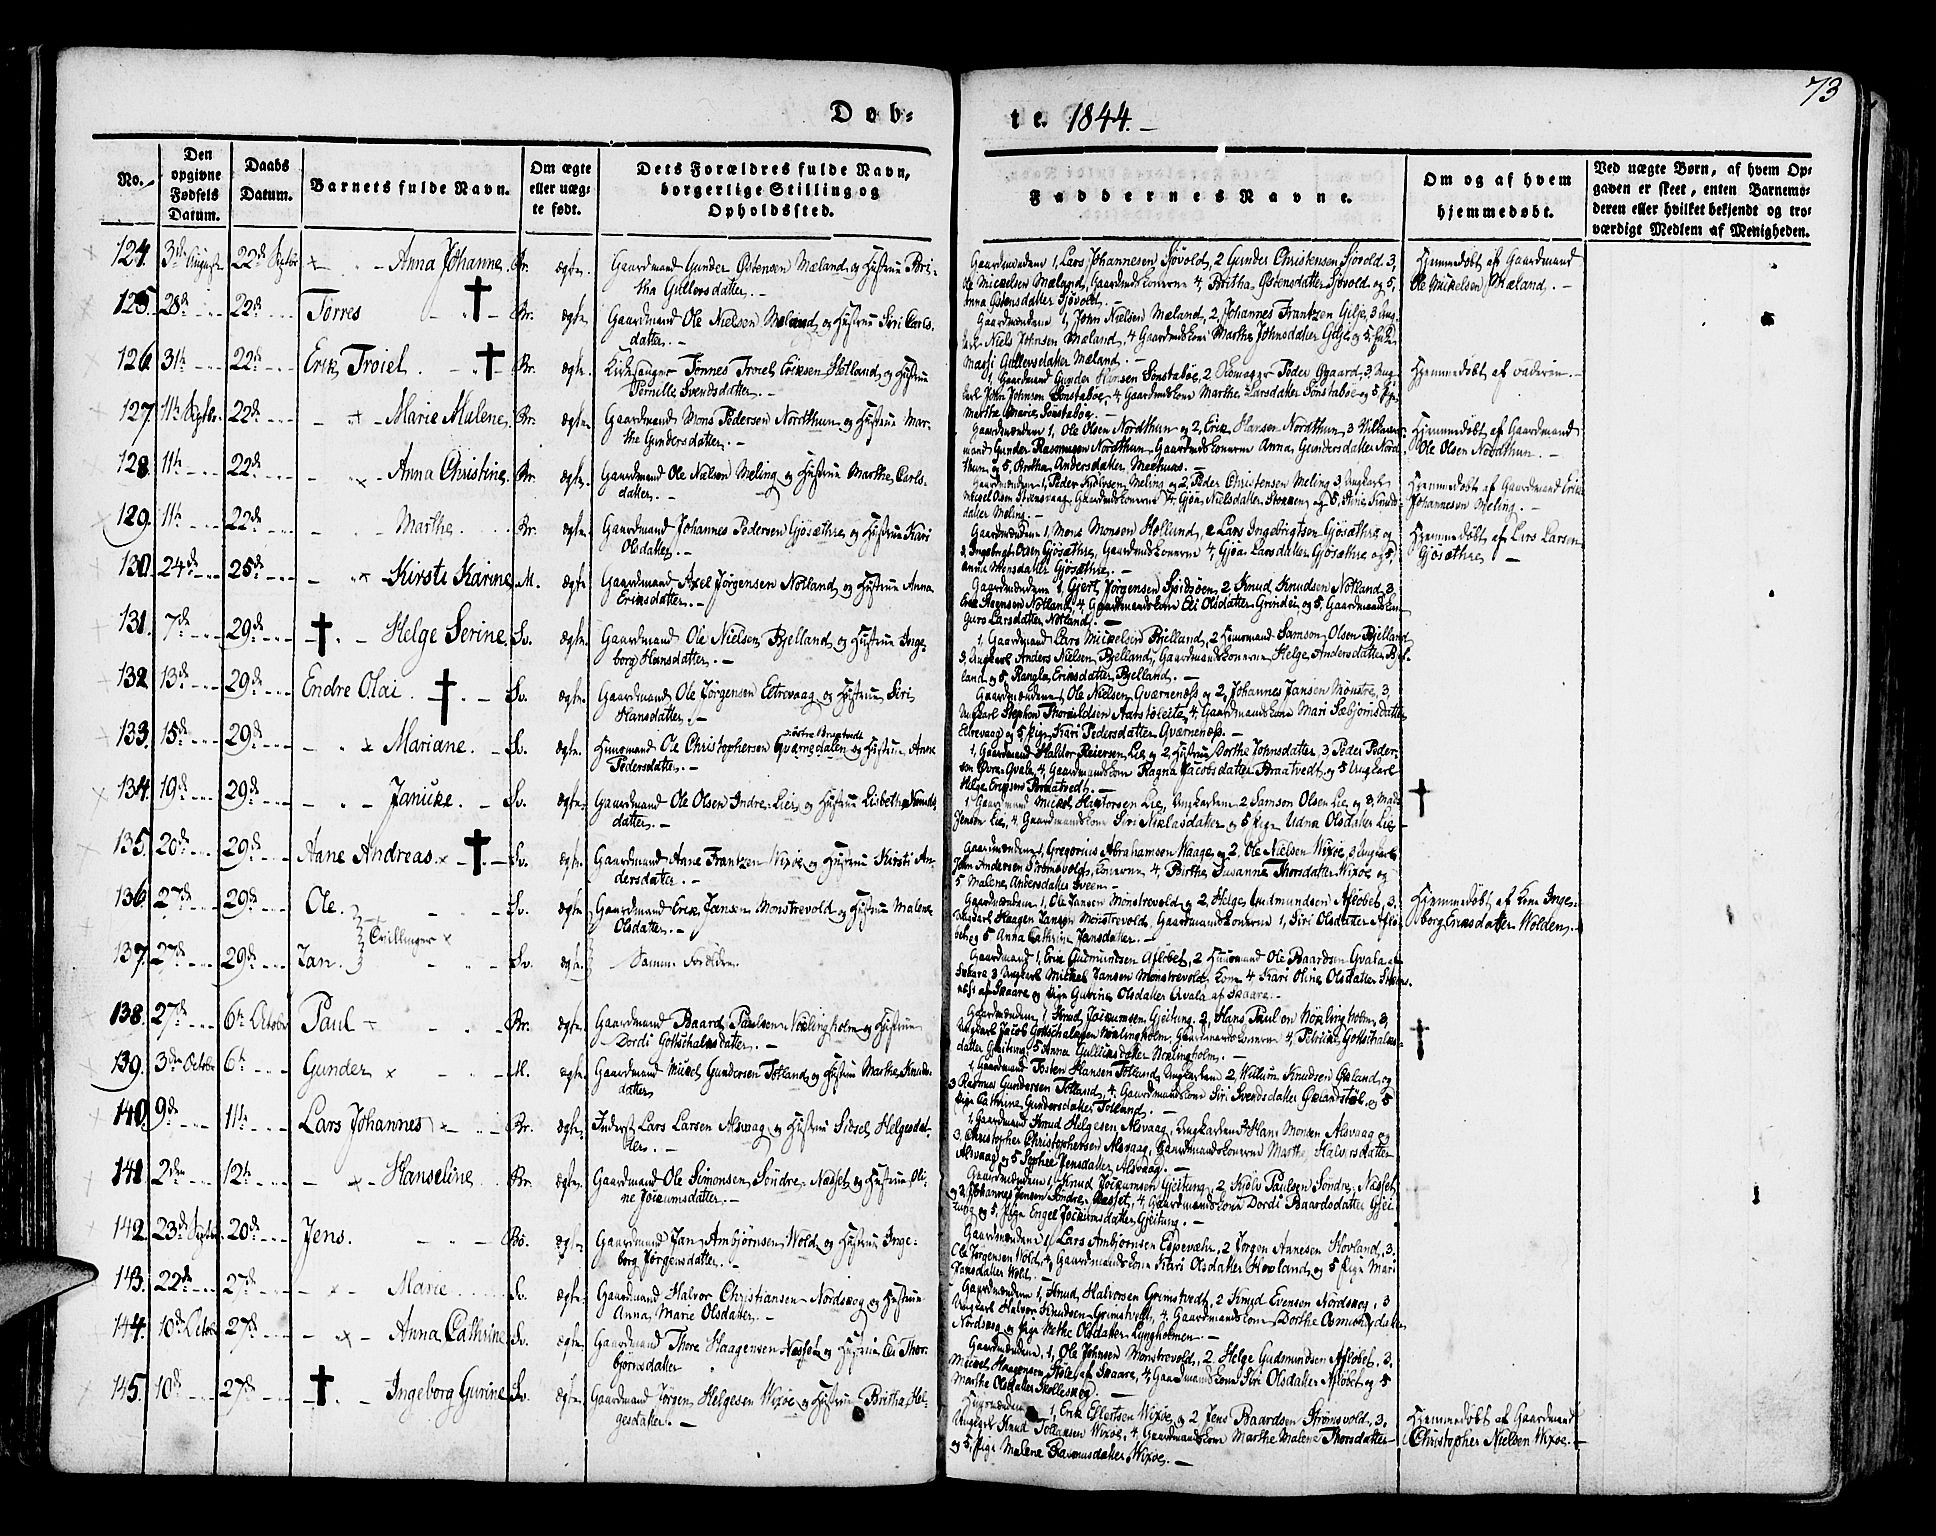 73
Døb-
te. 1844. –
No.
Den opgivne Fødsels Datum.
Daabs Datum.
Barnets fulde Navn.
Om ægte eller uæg-te født.
Dets Forældres fulde Navn, borgerlige Stilling og Opholdssted.
Faddernes Navne.
Om og af hvem hjemmedøbt.
Ved uægte Børn, af hvem Op-
gaven er skeet, enten Barnemo-
deren eller hvilket bekjendt og tro-
værdigt Medlem af Menigheden.
124. 3die August 22de Septbr Anna Johanne Br. ægte. Gaardmand Gunder Østensen Mæland og Hustrue Bri-
tha Gullersdatter. –
Gaardmændene 1, Lars Johannesen Sjøvold, 2 Gunder Christensen Sjøvold 3,
Ole Mickelsen Mæland, Gaardmandskonerne 4, Britha Østensdatter Sjøvold og 5,
Anna Østensdatter Sjøvold. –
Hjemmedøbt af Gaardmand
Ole Mickelsen Mæland. –
125. 28de 22de Torres Br. ægte. Gaardmand Ole Nielsen Mæland og Hustrue Siri Carls-
datter. –
Gaardmændene 1, John Nielsen Mæland, 2 Johannes Frantzen Gilje, 3 Ung-
karl Niels Johnsen Mæland, 4 Gaardmandskone Marthe Johnsdatter Gilje og 5 Pige
Magsi Gullersdatter Mæland. –
126. 31te 22de Erik Troiel. Br. ægte. Kirkesanger Tønnes Troiel Eriksen Hetland og Hustrue
Pernille Svendsdatter. –
1, Gaardmand Gunder Hansen Sønstabøe, 2 Peder Gaard, 3, Ung-
karl John Johnsen Sønstabøe, 4 Gaardmandskone Marthe Larsdatter Sønstabøe og 5 Pige
Marthe Marie Sønstabøe. –
Hjemmedøbt af Faderen. –
127. 11te Septbr. 22de Marie Malene. Br. ægte. Gaardmand Mons Pedersen Nordthun og Hustrue Mar-
tha Gundersdatter. –
Gaardmændene 1, Ole Olsen Nordthun og 2, Erik Hansen Nordthun, 3
mand Gunder Rasmusen Nordthun, Gaardmandskonerne Anna Gundersdatter Nord
thun og 5, Britha Andersdatter Mæhuus. –
Hjemmedøbt af Gaardmand
Ole Olsen Nordthun. –
128. 11te 22de Anna Christine. Br. ægte. Gaardmand Ole Nielsen Meling og Hustrue Marthe Carls-
datter. –
Gaardmændene 1, Peder Pedersen Meling og 2, Peder Christensen Meling 3, Ungkarl
Mikel Olsen Gaardmandskonerne 4, Gjøa Nielsdatter og 5, Anna
datter Meling. –
Hjemmedøbt af Gaardmand Erik
Johannesen Meling. –
129. 11te 22de Marthe. Br. ægte. Gaardmand Johannes Pedersen Gjøsæthre og Hustrue Kari
Olsdatter. –
Gaardmændene 1, Mons Monsen Hølland, 2 Lars Ingebrigtsen Gjøsæthre og
3, Ingebrigt Olsen Gjøsæthre, Gaardmandskonerne 4, Gjøa Larsdatter Gjøsæthre og 5,
Anna Monsdatter Gjøsæthre. –
Hjemmedøbt af Lars Larsen
Gjøsæthre. –
130. 24de 25de Kirsti Karine. M. ægte. Gaardmand Axel Jørgensen Notland og Hustrue Anna
Eriksdatter. –
Gaardmændene 1, Gjert Jørgensen 2 Knud Knudsen Notland, 3,
Erik Steensen Notland, 4 Gaardmandskone Eli Olsdatter Grindei, og 5, Gaardmandskone
Guro Larsdatter Notland. –
131. 7de 29de Helge Serine. Sv. ægte. Gaardmand Ole Nielsen Bjelland og Hustrue Inge-
borg Hansdatter. –
1, Gaardmand Lars Mickelsen Bjelland, 2 Huusmand Samson Olsen Bjelland
3, Ungkarl Anders Nielsen Bjelland, Gaardmandskonerne Helge Andersdatter Bjel-
land og 5 Rangla Eriksdatter Bjelland. –
132. 13de 29de Endre Olai. Sv. ægte. Gaardmand Ole Jørgensen Eltrevaag og Hustrue Siri
Hansdatter. –
Gaardmændene 1, Ole Nielsen Gværnenæss og 2, Johannes Jansen Mønstre, 3,
Ungkarl Stephen Thorkildsen 4, Gaardmandskone Mari Sæbjørnsdatter
Eltrevaag og 5, Pige Kari Pedersdatter Gværnenæss. –
133. 15de 29de Mariane. Sv. ægte. Huusmand Ole Christophersen Gværnedalen og Hustrue Anne
Pedersdatter. –
1, Gaardmand Halder Reiersen Lie og 2, Hustrue Dorthe Johnsdatter, 3 Peder Peder-
sen Øvre-Qvale, 4, Gaardmandskone Ragna Jacobsdatter Braatvedt og 5 Ungkarl
Helge Ericksen Braatvedt. –
134. 19de 29de Janicke. Sv. ægte. Gaardmand Ole Olsen Indre-Lier og Hustrue Lisbeth
datter. –
1 Gaardmand Mickel Lie, Ungkarlene 2 Samson Olsen Lie og 3, Mads
Jensen Lie, 4 Gaardmandskone Siri Niclasdatter og 5 Pige Udna Olsdatter Lie –
135. 20de 29de Aane Andreas. Sv. ægte. Gaardmand Aane Frantzen Wixøe og Hustrue Kirsti An-
dersdater. –
Gaardmændene 1, Gregorius Abrahamsen Waage og 2, Ole Nielsen Wixøe, 3 Ungkarl
John Andersen Strømsvold, konerne 4, Birthe Susanne Thorsdatter Wixøe og
5 Malene Andersdatter Sveen –
136. 27de 29de Ole. Sv. ægte. Gaardmand Erik Jansen Mønstrevold og Hustrue Malene
Olsdatter. –
Tvillinger
Gaardmændene 1, Ole Jansen Mønstrevold og 2, Helge Gudmundsen Afløbet, 3.
Ungkarl Haagen Jansen Mønstrevold, Gaardmandskonerne 1, Siri Olsdatter Afløe-
bet og 5 Anna Cathrine Jansdatter. –
Hjemmedøbt af Kone Inge-
borg Eriksdatter Wolden. –
137. 27de 29de Jan. Sv. ægte. Samme Forældre.
Gaardmand 1, Erik Gudmundsen Afløbet, 2 Huusmand Ole Baardsen Qvala af
Skaare 3 Ungkarl Mickel Jansen Mønstrevold, Kone 4 Kari Oline Olsdatter
næss af Skaare og Pige Gurine Olsdatter Qvala af Skaare. –
138. 27de 6te October Paul Br. ægte. Gaardmand Baard Paulsen Nøklingholm og Hustrue
Dordi Gotschalksdatter. –
Gaardmændene 1, Knud Jockumsen Gjeitung, 2, Hans Paulsen Nøklingholm, 3,
Ungkarl Jacob Gotschalksen Nøklingholm, Gaardmandskonerne 4, Petrikke Gotschalks-
datter Gjeitung, 5 Anna Gullicksdatter Nøklingholm. –
139. 3die Octobr 6te Gunder M. ægte. Gaardmand Mickel Gundersen Totland og Hustrue Marthe Knuds-
datter
1, Gaardmand Tosten Hansen Totland, Ungkarlene 2, Willum Knudsen Øsland og
3 Rasmus Gundersen Totland, 4, Gaardmandskone Siri Svendsdatter og 5
Pige Cathrine Gundersdatter Totland. –
140. 9de 11te Lars Johannes Br. ægte. Inderst Lars Larsen Alsvaag og Hustrue Sidsel Helgesdat-
ter. –
1, Gaardmand Knud Helgesen Alsvaag, Ungkarlene 2 Hans Monsen Alsvaag og
3, Christopher Christophersen Alsvaag, Gaardmandskonerne Marthe Halvorsdatter
Alsvaag og 5 Sophie Jensdatter Alsvaag. –
141 2den 12te Hanseline. Br. ægte. Gaardmand Ole Simonsen Søndre-Næsset og Hustrue Oli-
ne Jockumsdatter. –
Gaardmændene 1, Knud Jockumsen Gjeitung, 2 Kiøln Paulsen Søndre-Næsset
og 3, Johannes Jensen Søndre-Næsset, 4, Gaardmandskone Dordi Baardsdatter Gjei-
tung og 5, Pige Engel Jockumsdatter Gjeitung. –
142. 23de Septbr 20de Jens. Bø. ægte. Gaardmand Jan Ambjørnsen Wold og Hustrue Inge-
borg Jørgensdatter. –
Gaardmændene 1, Lars Ambjørnsen Espevæhr, 2 Jørgen Aanesen Hovland, 3.
Ole Jørgensen Wold, 4, Gaardmandskone Kari Olsdatter Hovland og 5 Pige Mari
Jansdatter Wold. –
143. 22de 27de Marie Sv. ægte. Gaardmand Halvor Christiansen Nordskog og Hustrue
Anna Marie Olsdatter. –
Gaardmændene 1, Knud Halvorsen Grimstvedt, 2 Knud Evensen Nordskog, 3
Ungkarl Halvor Knudsen Grimstvedt, 4, Gaardmandskone Dorthe Osmundsdatter
Nordskog og Pige Methe Olsdatter Lyngholmen. –
144. 10de Octobr 27de Anna Cathrine Sv. ægte. Gaardmand Thore Haagensen Næsset og Hustrue Eli Thor-
bjørnsdatter
Gaardmændene 1, Ole Johnsen Mønstrevold, 2. Helge Gudmundsen Afløbet, 3.
Mickel Haagensen af Skaare, 4, Gaardmandskone Siri Olsdatter Afløbet og 5
Marthe Olsdatter Skollesskog. –
145. 10de 27de Ingeborg Gurine. Sv. ægte. Gaardmand Jørgen Helgesen Wixøe og Hustrue Britha Hel-
gesdatter. –
Huusmændene 1, Erik Ellertsen Wixøe og 2 Jens Baardsen Strømsvold, 3.
Ungkarl Knud Tollaksen Wixøe, 4, Gaardmandskone Marthe Malene Thorsdatter
og 5, Pige Malene Rasmusdatter Wixøe. –
Hjemmedøbt af Gaardmand
Christopher Nielsen Wixøe. –